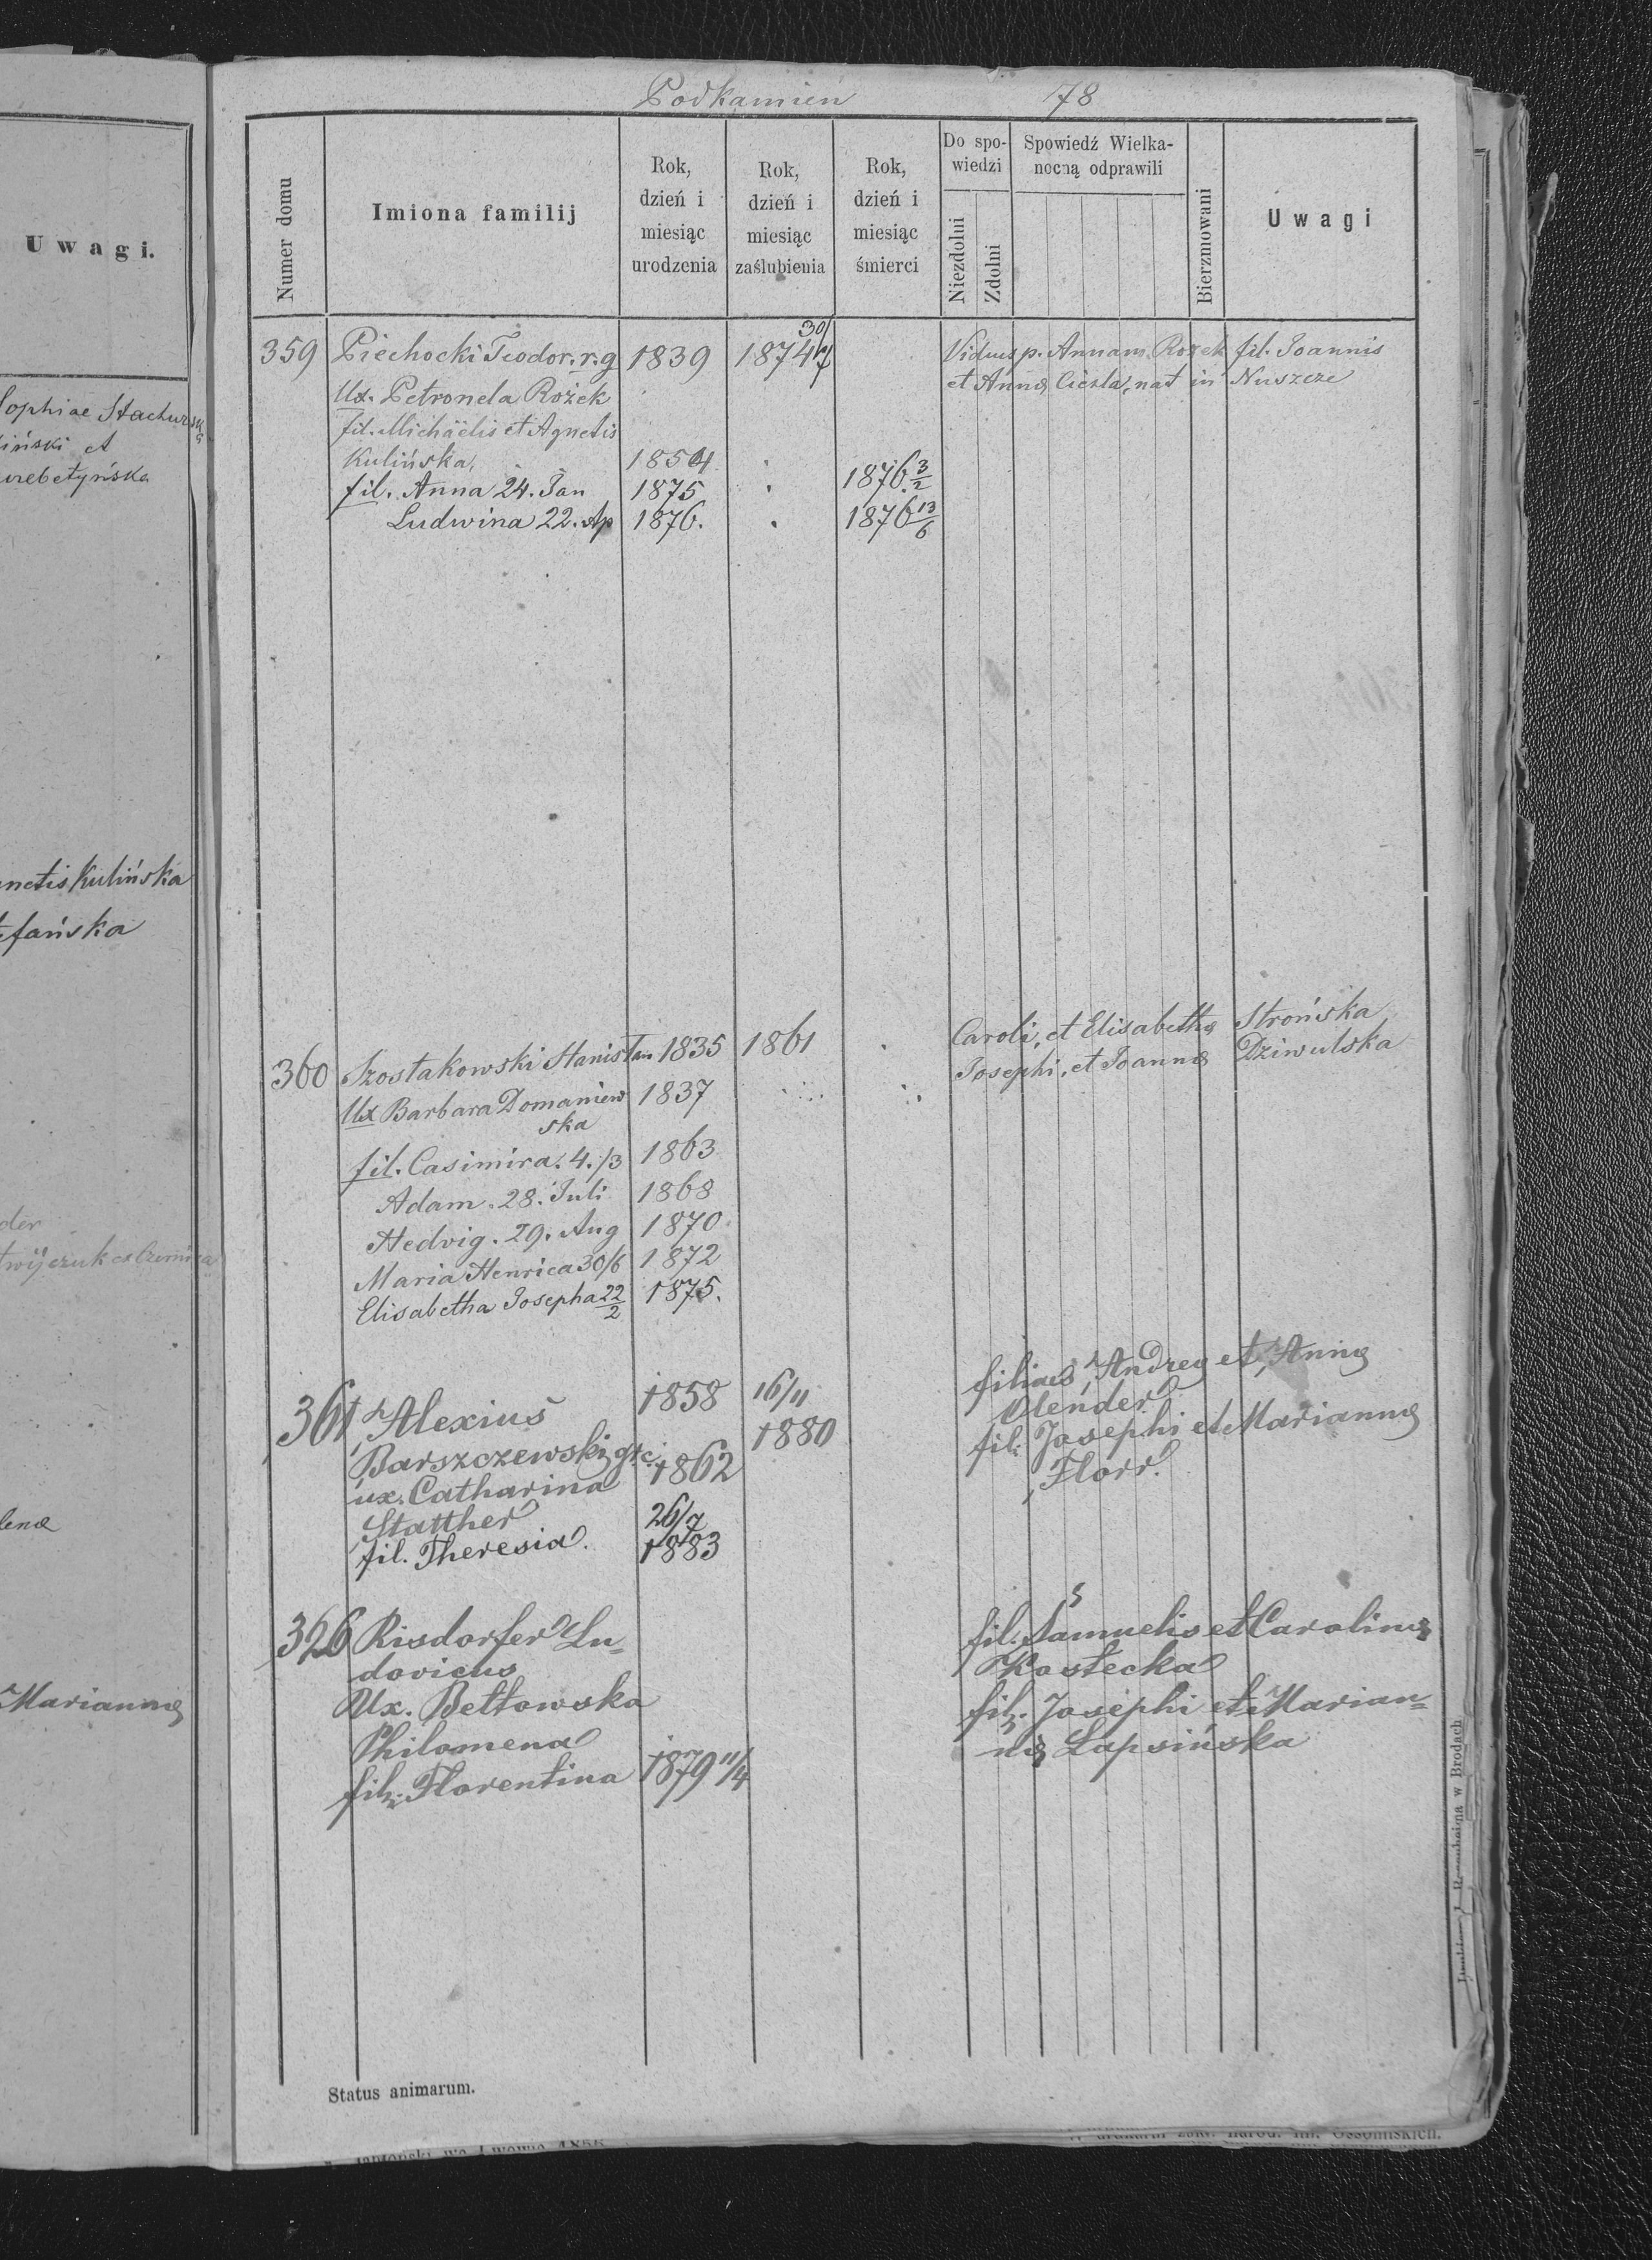 Podkamień 78
Numer domu
Imiona familij
Rok, dzień i miesiąc urodzenia
Rok, dzień i miesiąc zaślubienia
Rok, dzień i miesiąc śmierci
Do spowiedzi
Niezdolni
Zdolni
Spowiedź Wielkanocną odprawili
Bierzmowani
Uwagi
Uwagi.
359 Piechocki Teodor. r. g 1839 1874 30/7 Viduus p. Annam Rożek fil. Joannis
Ux. Petronela Rożek et Annæ Cieżla, nat in Nuszcze
fil. Michaëlis et Agnetis
Kulińska, 1854
fil. Anna 24. Jan 1875 1876. 3/2
Ludwina 22. Ap 1876. 1876 13/6
360 Szostakowski Stanislau 1835 1861 Caroli, et Elisabethæ Strońska
Ux Barbara Domaniew 1837 Josephi, et Joannæ Dziwulska
ska
fil. Casimira. 4./3 1863
Adam. 28. Juli 1868
Hedvig. 29. Aug 1870
Maria Henrica 30/6 1872
Elisabetha Josepha 22/2 1875.
361 Alexius 1858 16/11 filius Andreæ et Annæ
Barszczewski gr.c. 1880 Olender
ux. Catharina 1862 fil. Josephi et Mariannæ
Statther 26/7 Florr.
fil. Theresia. 1883
326 Risdorfer Lu- fil. Samuelis et Carolinæ
dovicus Kostecka
Ux. Bettowska fil. Josephi et Marian-
Philomena næ Lapsińska
fil. Florentina 1879 11/4
Status animarum.
ophiae Stachurska
iński et
netis Kulińska
fańska
der
lenæ
Mariannæ
w Brodach